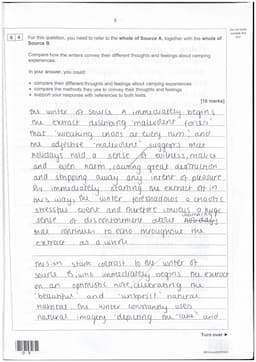 5
Do not write outside the box
0 4 For this question, you need to refer to the whole of Source A, together with the whole of
Source B.
Compare how the writers convey their different thoughts and feelings about camping
experiences.
In your answer, you could:
• compare their different thoughts and feelings about camping experiences
• compare the methods they use to convey their thoughts and feelings
• support your response with references to both texts.
[16 marks]
The writer of source A immediately begins
the extract describing malevolent forces
that 'wreaking chaos at every turn', and
the adjective 'malevolent' suggests that
holidays hold a sense of evilness, malice
and even harm, causing great destruction
and stripping away any intent of pleasure
By immediately starting the extract off in
this way, the writer foreshadows a chaotic
stressful event and therefore conveys a huge
sense of discontentment about
camping
that continues to echo throughout the
extract as a whole
This in stark contrast to the writer of
source B, who immediately begins the extract
on an optimistic note, celebrating the
'beautiful' and 'unspoilt' natural
habitat. The writer constantly uses
natural imagery 'depicting the lake' and
Turn over
0 9